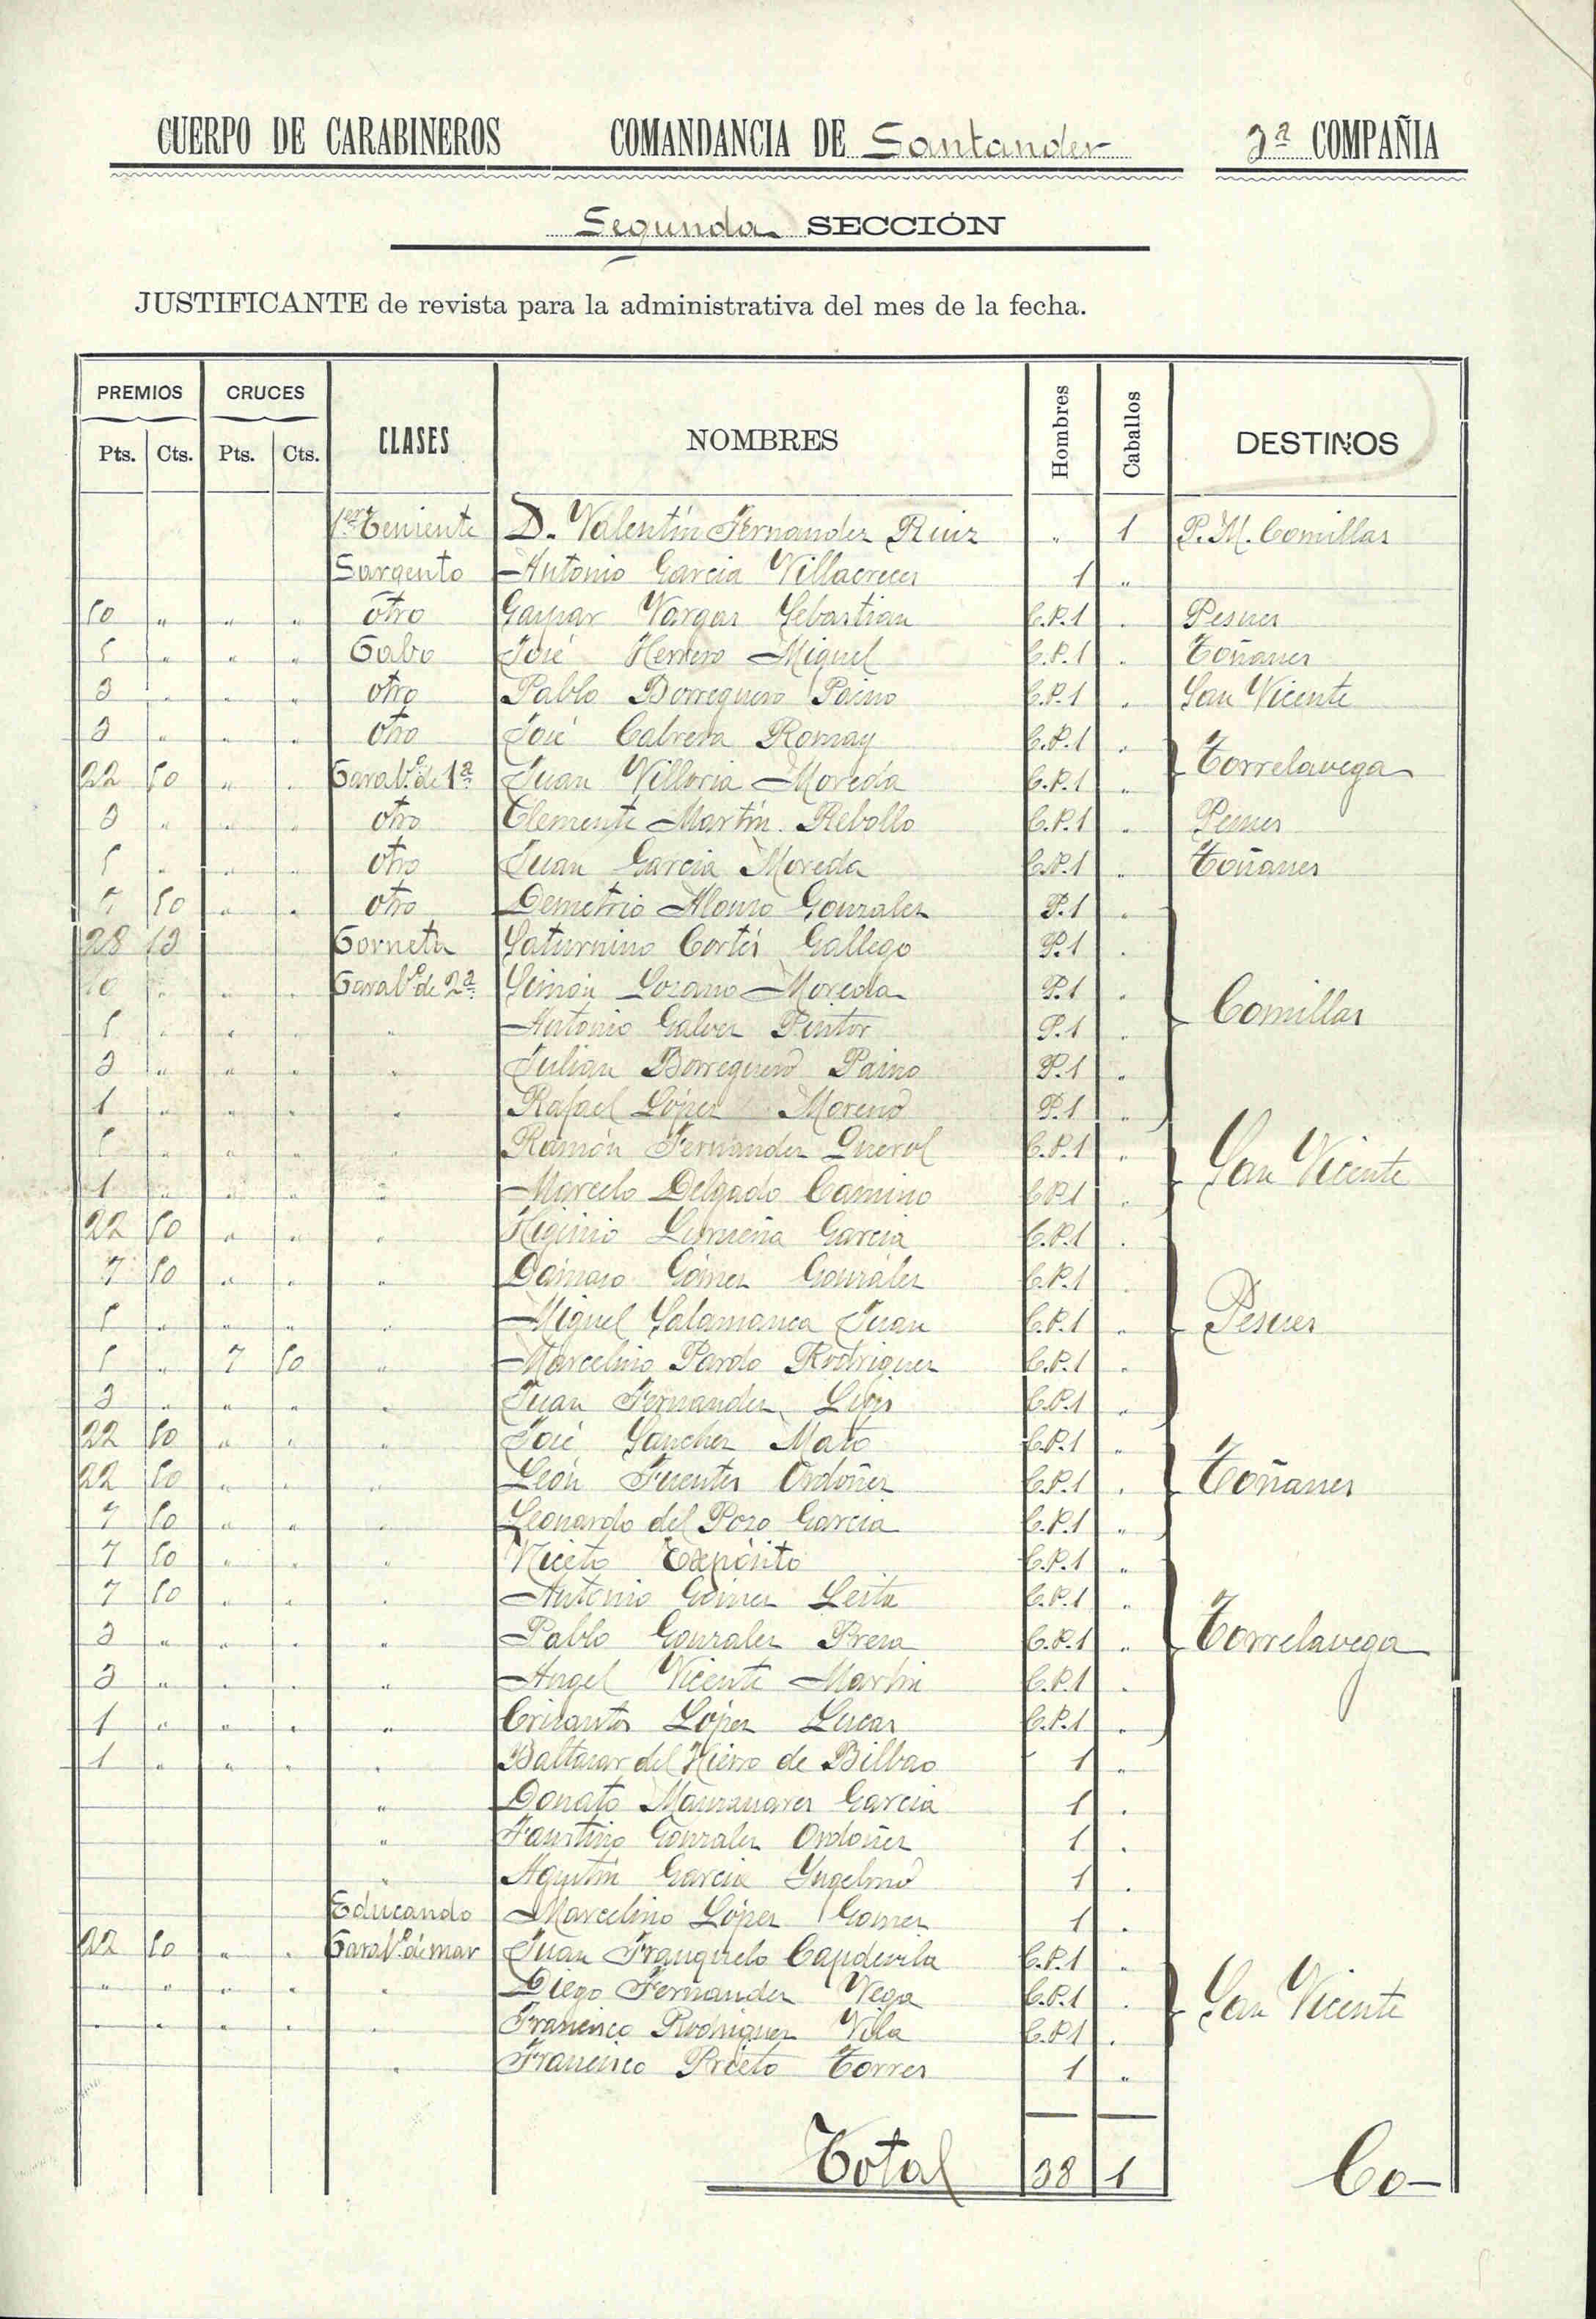 CUERPO DE CARABINEROS COMANDANCIA DE Santander 3ª COMPAÑIA
Segunda SECCIÓN
JUSTIFICANTE de revista para la administrativa del mes de la fecha.
PREMIOS CRUCES CLASES NOMBRES Hombres Caballos DESTINOS
Pts. Cts. Pts. Cts.
1er Teniente D. Valentín Fernandez Ruiz " 1 P.M. Comillas
Sargento Antonio Garcia Villacreces 1 "
10 " " " otro Gaspar Vargas Sebastian C.P.1 " Pesues
5 " " " Cabo José Herrero Miguel C.P.1 " Toñanes
3 " " " otro Pablo Borreguero Paino C.P.1 " San Vicente
3 " " " otro José Cabrera Romay C.P.1 "
22 50 " " Carabº de 1ª Juan Villoria Moreda C.P.1 " Torrelavega
3 " " " otro Clemente Martín Rebollo C.P.1 " Pesues
5 " " " otro Juan Garcia Moreda C.P.1 " Toñanes
7 50 " " otro Demetrio Alonso Gonzalez P.1 "
28 13 Corneta Saturnino Cortés Gallego P.1 "
10 " " " Carabº de 2ª Simón Lozano Moreda P.1 " Comillas
5 " " " " Antonio Galvez Pintor P.1 "
3 " " " " Julian Borreguero Paino P.1 "
1 " " " " Rafael López Moreno P.1 "
5 " " " " Ramón Fernandez Querol C.P.1 "
1 " " " " Marcelo Delgado Camino C.P.1 " San Vicente
22 50 " " " Higinio Garcia C.P.1 "
7 50 " " " Dámaso Gómez González C.P.1 "
5 " " " " Miguel Salamanca Juan C.P.1 " Pesues
5 " 7 50 " Marcelino Pardo Rodriguez C.P.1 "
3 " " " " Juan Fernandez C.P.1 "
22 50 " " " José Sanchez Mato C.P.1 "
22 50 " " " León Fuentes Ordoñez C.P.1 " Toñanes
7 50 " " " Leonardo del Pozo Garcia C.P.1 "
7 50 " " " Niceto Expósito C.P.1 "
7 50 " " " Antonio Gómez C.P.1 "
3 " " " " Pablo Gonzalez C.P.1 " Torrelavega
3 " " " " Angel Vicente Martin C.P.1 "
1 " " " " Crisantos López Lucas C.P.1 "
1 " " " " Baltasar del Hierro de Bilbao 1 "
" Donato Manzanares Garcia 1 "
" Faustino Gonzalez Ordoñez 1 "
" Agustín Garcia Ingelmo 1 "
Educando Marcelino López Gomez 1 "
22 50 " " Carabº de mar Juan Franquelo Capdevila C.P.1 "
" " " " " Diego Fernandez Vega C.P.1 " San Vicente
" " " " " Francisco Rodriguez Vila C.P.1 "
" Francisco Prieto Torres 1 "
Total 38 1 Co-